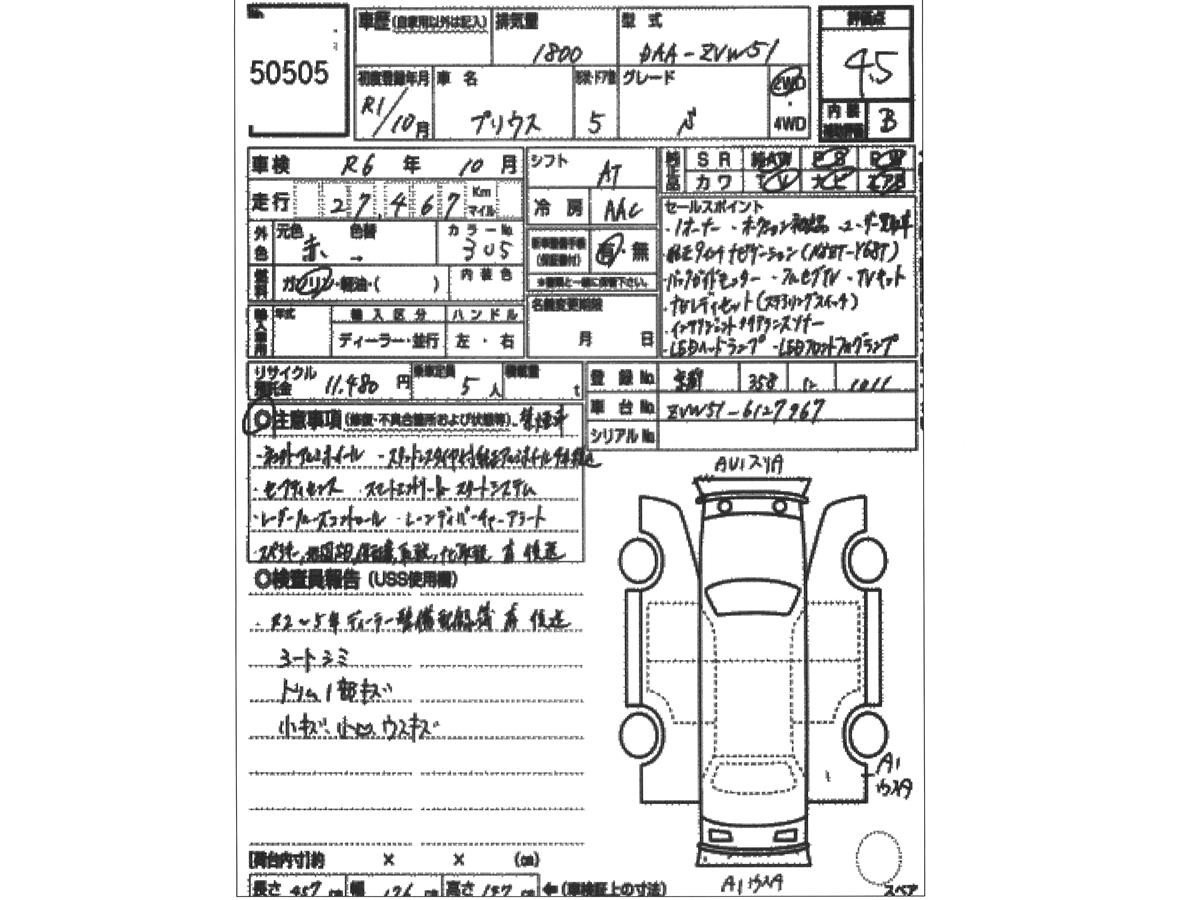 No.
50505
車歴 (自家用以外は記入)
排気量
1800
型式
DAA-ZVW51
評価点
4.5
初度登録年月
R1/10月
車名
プリウス
形状・ドア数
5
グレード
S
2WD・4WD
内装
補助評価
B
車検 R6年 10月
シフト
AT
純正品
SR 純AW PS PW
カワ TV ナビ エアB
走行 27,467 Km マイル
冷房
AAC
外色
元色 赤 → 色替
カラーNo. 3U5
新車整備手帳(保証書付)
有・無
※書類と一緒に保管下さい。
燃料
ガソリン・軽油・( )
内装色
名義変更期限
月 日
輸入車用
年式
輸入区分
ディーラー・並行
ハンドル
左・右
セールスポイント
・1オーナー
・バックガイドモニター ・フルセグTV ・TVキット
・ナビレディセット(ステアリングスイッチ)
・インテリジェントクリアランスソナー
・LEDヘッドランプ ・LEDフロントフォグランプ
リサイクル預託金 11,480円
乗車定員 5人
積載量 t
登録No. 京都 358 1011
車台No. ZVW51-6127967
シリアルNo.
◎注意事項(修復・不具合箇所および状態等) 禁煙車
・セーフティセンス ・スマートエントリー&スタートシステム
・レーダークルーズコントロール ・レーンディパーチャーアラート
後送
◎検査員報告(USS使用欄)
・R2~5年ディーラー整備記録簿 有 後送
シートシミ
トリム1部キズ
小キズ、小凹、ウスキズ
AU1スリA
A1
ウスA
A1ウスA
スペア
[荷台内寸]約 × × (cm)
長さ 457 cm 幅 176 cm 高さ 147 cm ←(車検証上の寸法)